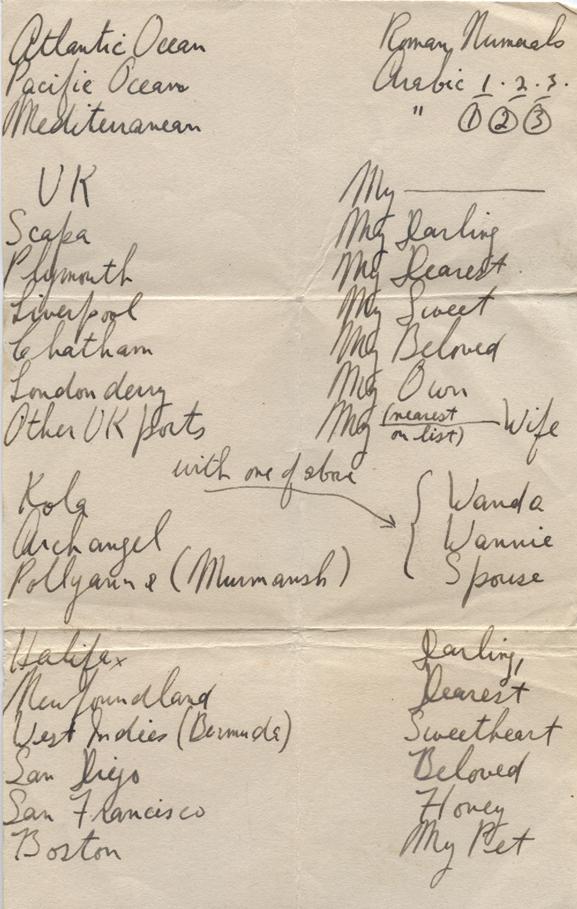 Atlantic Ocean Roman Numerals
Pacific Ocean Arabic 1 · 2 · 3 ·
Mediterranean " ① ② ③
UK My ————
Scapa My Darling
Plymouth My Dearest
Liverpool My Sweet
Chatham My Beloved
Londonderry My Own
Other UK ports My (nearest on list) Wife
with one of above
Kola Wanda
Archangel Wannie
Pollyanna (Murmansh) Spouse
Halifax Darling,
Newfoundland Dearest
West Indies (Bermuda) Sweetheart
San Diego Beloved
San Francisco Honey
Boston My Pet